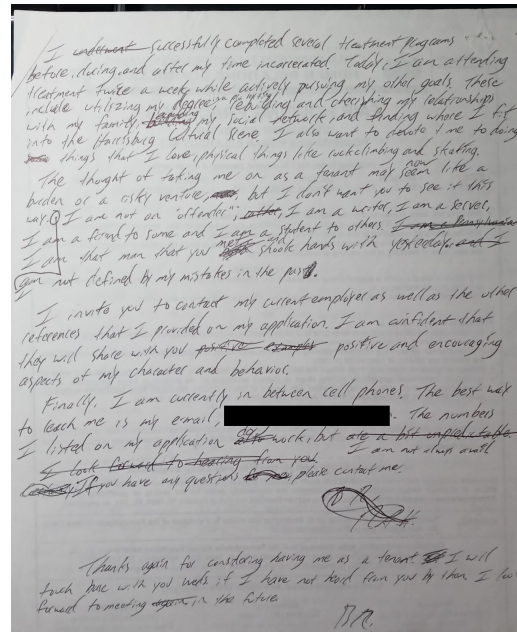 I underwent successfully completed several treatment programs
before, during, and after my time incarcerated. Today, I am attending
treatment twice a week while actively pursuing my other goals. These
include utilizing my degree, rebuilding and cherishing my relationships
with my family, expanding my social network, and finding where I fit
into the Harrisburg cultural scene. I also want to devote time to doing
things that I love, physical things like rockclimbing and skating.
The thought of taking me on as a tenant may now seem like a
burden or a risky venture, but I don't want you to see it this
way. I am not an "offender", I am a writer, I am a server,
I am a friend to some and I am a student to others. I am a Pennsylvanian
I am that man that you met and shook hands with yesterday. and I
am not defined by my mistakes in the past.
I invite you to contact my current employer as well as the other
references that I provided on my application. I am confident that
they will share with you positive examples positive and encouraging
aspects of my character and behavior.
Finally, I am currently in between cell phones. The best way
to reach me is my e-mail, . The numbers
I listed on my application do work, but are a bit unpredictable.
I look forward to hearing from you I am not always avail
If you have any questions please contact me.
Thanks again for considering having me as a tenant. I will
touch base with you weds. if I have not heard from you by then I look
forward to meeting again in the future
B.R.